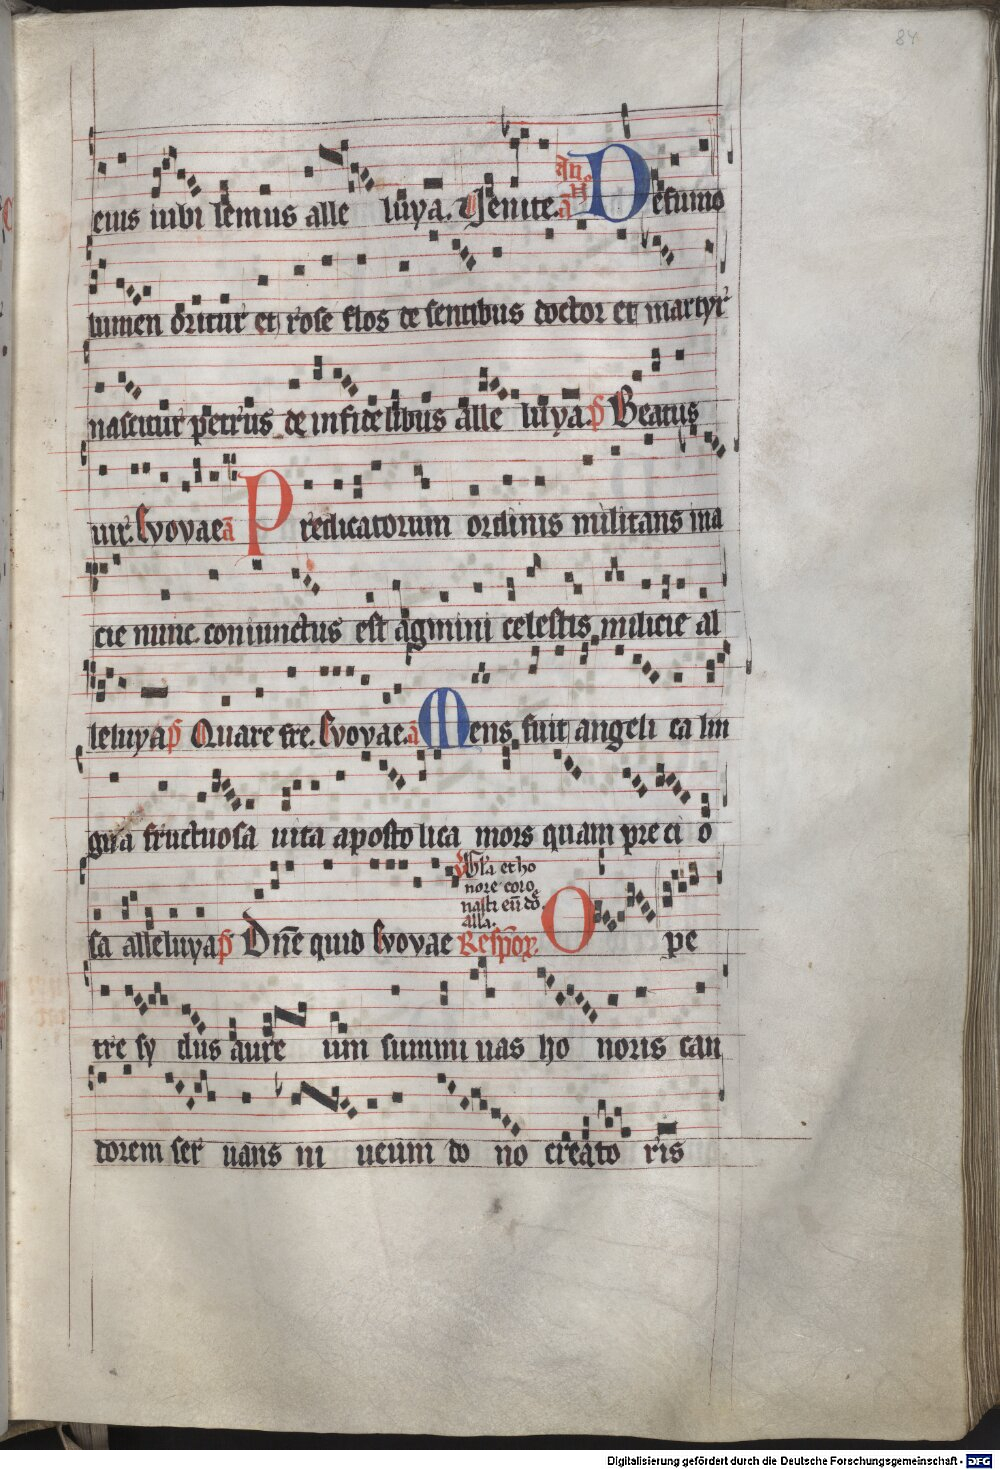 84
eius iubi lemus alle luya. Venite. an̄ De fumo
lumen oritur et rose flos de sentibus doctor et martyr
nascitur petrus de infidelibus alle luya. p̄s Beatus
uir. Evovae ā Predicatorum ordinis militans in a
cie nunc coniunctus est agmini celestis milicie al
leluya p̄s Quare fre. Evovae. ā Mens fuit angeli ca lin
gua fructuosa uita aposto lica mors quam pre ci o
v̄ Gl̄a et ho
nore coro
nasti eū dn̄e
all̄a.
sa alleluya p̄s Dn̄e quid Evovae Respoꝝ. O pe
tre sy dus aure um summi uas ho noris can
dorem ser uans ni ueum do no creato ris
Digitalisierung gefördert durch die Deutsche Forschungsgemeinschaft - DFG